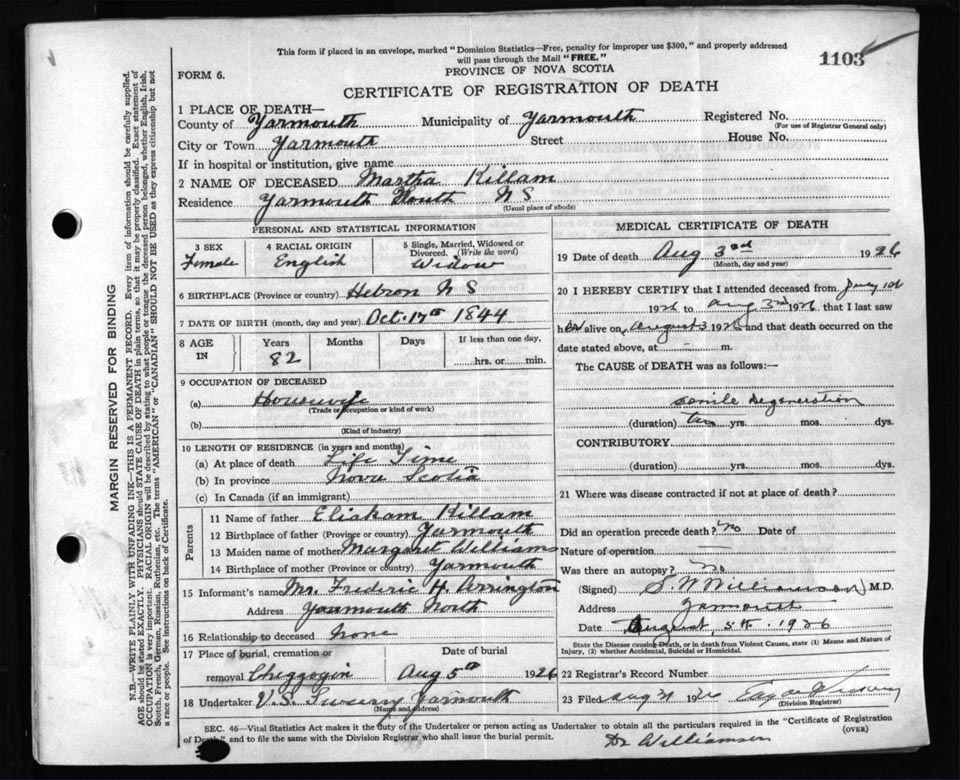 This form if placed in an envelope, marked "Dominion Statistics—Free, penalty for improper use $300," and properly addressed
will pass through the Mail "FREE."
1103
FORM 6.
PROVINCE OF NOVA SCOTIA
CERTIFICATE OF REGISTRATION OF DEATH
1 PLACE OF DEATH—
County of Yarmouth Municipality of Yarmouth Registered No.
(For use of Registrar General only)
City or Town Yarmouth Street House No.
If in hospital or institution, give name
2 NAME OF DECEASED Martha Killam
Residence Yarmouth South N S
(Usual place of abode)
PERSONAL AND STATISTICAL INFORMATION
3 SEX
Female
4 RACIAL ORIGIN
English
5 Single, Married, Widowed or
Divorced. (Write the word)
Widow
6 BIRTHPLACE (Province or country) Hebron N S
7 DATE OF BIRTH (month, day and year) Oct. 17th 1844
8 AGE
IN
Years
82
Months
Days
If less than one day,
hrs. or min.
9 OCCUPATION OF DECEASED
(a) Housewife
(Trade or occupation or kind of work)
(b)
(Kind of industry)
10 LENGTH OF RESIDENCE (in years and months)
(a) At place of death Life Time
(b) In province Nova Scotia
(c) In Canada (if an immigrant)
Parents
11 Name of father Eliakam Killam
12 Birthplace of father (Province or country) Yarmouth
13 Maiden name of mother Margaret Williams
14 Birthplace of mother (Province or country) Yarmouth
15 Informant's name Mr. Frederic H. Arrington
Address Yarmouth North
16 Relationship to deceased None
17 Place of burial, cremation or
removal Cheggogin
Date of burial
Aug 5th 1926
18 Undertaker V.S. Sweeny Yarmouth
(Name and address)
MEDICAL CERTIFICATE OF DEATH
19 Date of death Aug 3rd 1926
(Month, day and year)
20 I HEREBY CERTIFY that I attended deceased from July 1st
1926 to Aug 3rd 1926 that I last saw
her alive on August 3 1926 and that death occurred on
date stated above, at — m.
The CAUSE of DEATH was as follows:—
senile degeneration
(duration) yrs. mos. dys.
CONTRIBUTORY
(duration) yrs. mos. dys.
21 Where was disease contracted if not at place of death?
Did an operation precede death? No Date of
Nature of operation —
Was there an autopsy? No
(Signed) S. W. Williamson M.D.
Address Yarmouth
Date August, 5th. 1926
State the Disease causing Death, or in Death from Violent Causes, state (1) Means and Nature of
Injury, (2) whether Accidental, Suicidal or Homicidal.
22 Registrar's Record Number
23 Filed Aug 1926
(Division Registrar)
SEC. 46—Vital Statistics Act makes it the duty of the Undertaker or person acting as Undertaker to obtain all the particulars required in the "Certificate of Registration
of Death" and to file the same with the Division Registrar who shall issue the burial permit.
(OVER)
Dr Williamson
MARGIN RESERVED FOR BINDING
N.B.—WRITE PLAINLY WITH UNFADING INK—THIS IS A PERMANENT RECORD. Every item of information should be carefully supplied.
AGE should be stated EXACTLY. PHYSICIANS should STATE CAUSE OF DEATH in plain terms, so that it may be properly classified. Exact statement of
OCCUPATION is very important. RACIAL ORIGIN will be described by stating to what people or tongue the deceased person belonged, whether English, Irish,
Scotch, French, German, Russian, Ruthenian, etc. The terms "AMERICAN" or "CANADIAN" SHOULD NOT BE USED as they express citizenship but not
a race or people. See instructions on back of Certificate.